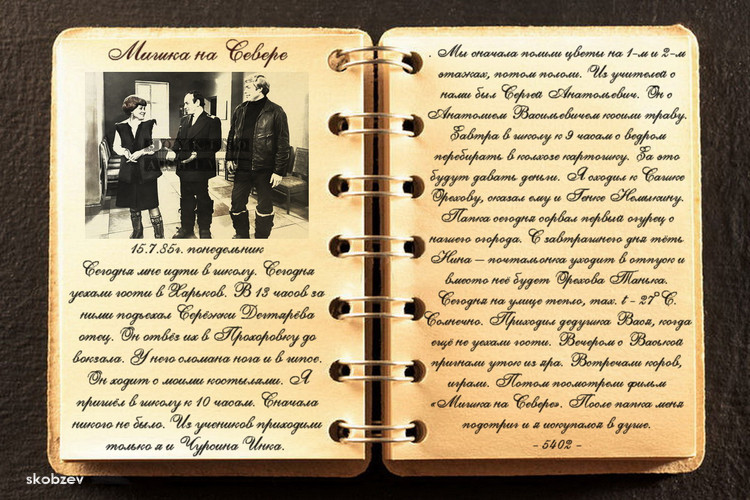 Мишка на Севере
15.7.85г. понедельник
Сегодня мне идти в школу. Сегодня
уехали гости в Харьков. В 13 часов за
ними подъехал Серёжки Дегтярёва
отец. Он отвёз их в Прохоровку до
вокзала. У него сломана нога и в гипсе.
Он ходит с моими костылями. Я
пришёл в школу к 10 часам. Сначала
никого не было. Из учеников приходили
только я и Чурсина Инка.
. Мы сначала полили цветы на 1-м и 2-м
этажах, потом пололи. Из учителей с
нами был Сергей Анатольевич. Он с
Анатолием Васильевичем косили траву.
Завтра в школу к 9 часам с ведром
перебирать в колхозе картошку. За это
будут давать деньги. Я сходил к Сашке
Орехову, сказал ему и Генке Немыкину.
Папка сегодня сорвал первый огурец с
нашего огорода. С завтрашнего дня тёть
Нина – почтальонка уходит в отпуск и
вместо неё будет Орехова Танька.
Сегодня на улице тепло, max. t - 27° С.
Солнечно. Приходил дедушка Вася, когда
ещё не уехали гости. Вечером с Васькой
пригнали уток из яра. Встречали коров,
играли. Потом посмотрели фильм
«Мишка на Севере». После папка меня
подстриг и я искупался в душе.
- 5402 -
skobzev